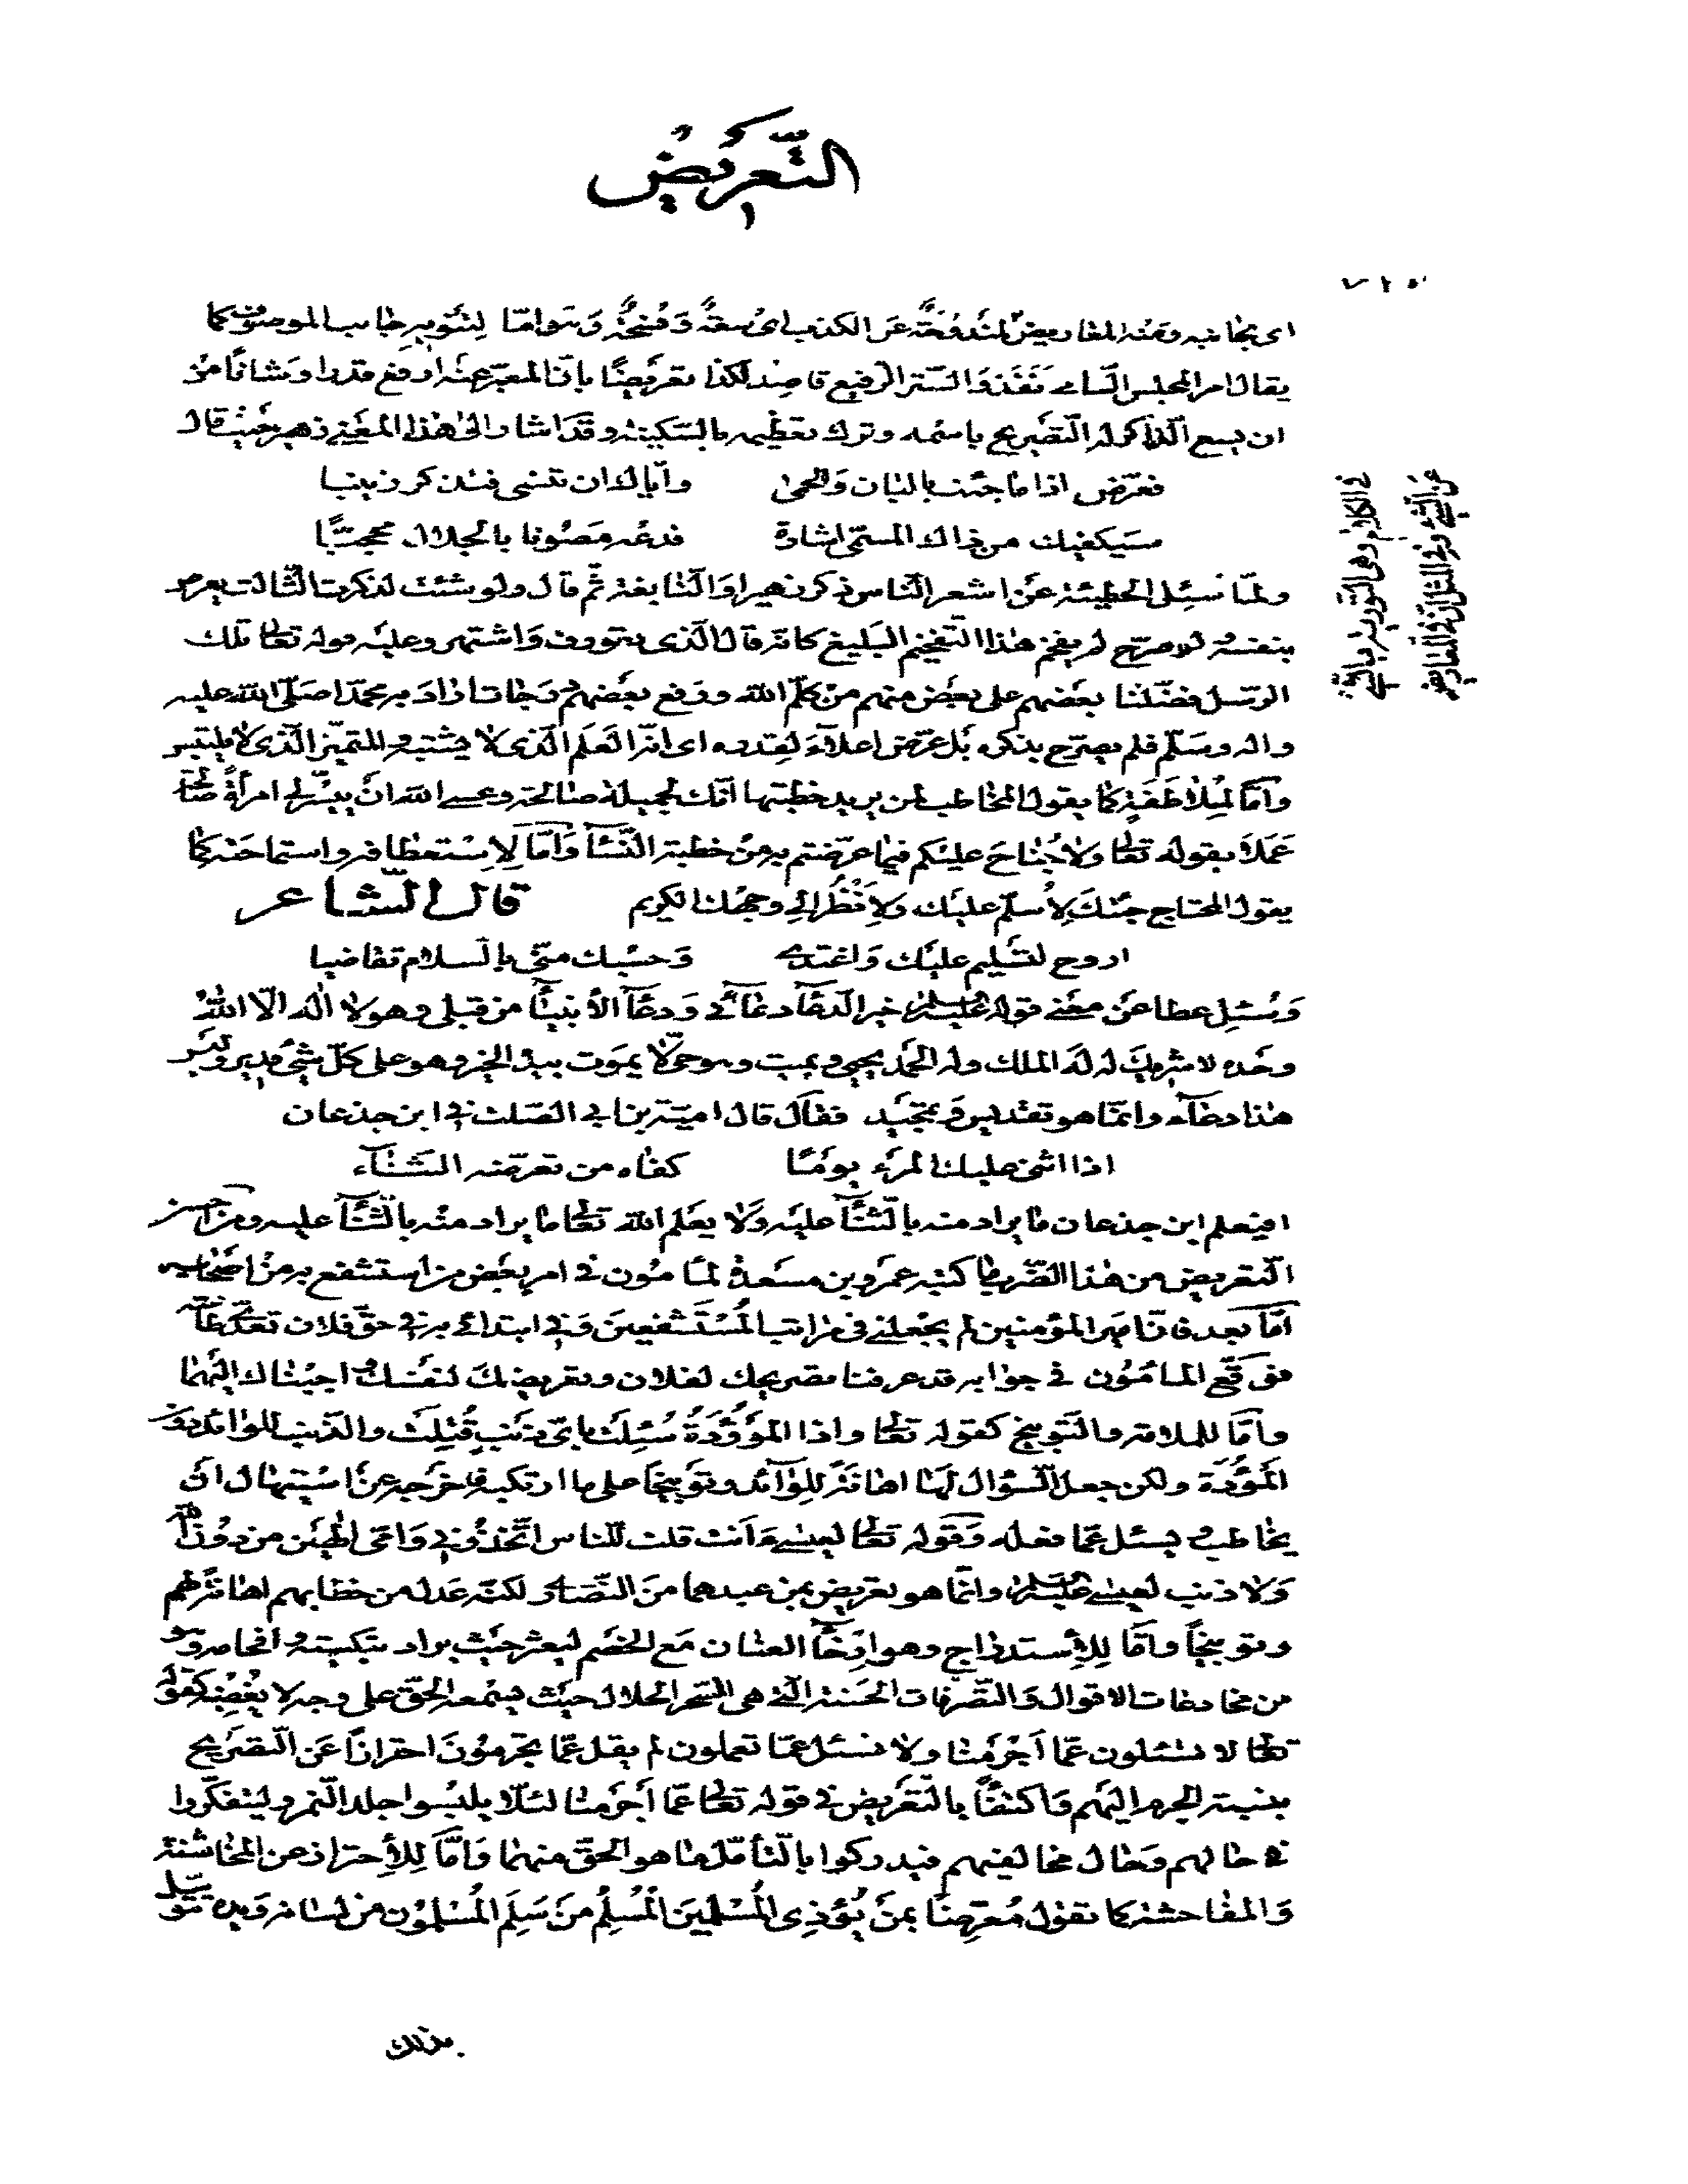 التَّعرِيضُ
اى بجانبه ومنه المعاريض لمندوحة عن الكذب اى سعة وفسحة وهو اما لتنويه جانب الموصوف كما
يقال امر المجلس السامى نفذ والستر الرفيع قاصد لكذا تعريضًا بان المعبر عنه ارفع قدرا وشانًا من
ان يسع الذاكر له التصريح باسمه وترك تعظيمه بالسكينة وقد اشار الى هذا المعنى زهير حيث قال
فعرّض اذا ما جئت بالبان والحمى وايّاك ان تنسى فتذكر زينبا
سيكفيك من ذاك المسمّى اشارة فدعه مصونا بالجلال محجبّا
ولمّا سئل الحطيئة عن اشعر الناس ذكر زهيرا والنابغة ثم قال ولو شئت لذكرت الثالث يعرض
بنفسه لو صرح لم يفخم هذا التفخيم البليغ كانه قال الذى يعرف واشتهر وعليه قوله تعالى تلك
الرسل فضّلنا بعضهم على بعض منهم من كلم الله ورفع بعضهم درجات اراد به محمدا صلى الله عليه
واله وسلّم فلم يصرح بذكره بل عرّض اعلاء لقدره اى انّه العلم الذى لا يشتبه والمتميز الذى لا يلتبس
وامّا لملاطفة كما يقول الخاطب لمن يريد خطبتها انّك لجميلة صالحة وعسى الله ان ييسّر لى امرأة صالحة
عملا بقوله تعالى ولا جناح عليكم فيما عرّضتم به من خطبة النسآ وامّا للاستعطاف والاستماحة كما
يقول المحتاج جئتك لأسلّم عليك ولأنظر الى وجهك الكريم قال الشاعر
اروح لتسليم عليك واغتدى وحسبك منّى بالسلام تقاضيا
وسئل عطا عن معنى قوله عليه السلام خير الدعآ دعائى ودعآ الأنبيآ من قبلى وهو لا اله الا الله
وحده لا شريك له له الملك وله الحمد يحيى ويميت وهو حىّ لا يموت بيده الخير وهو على كل شئ قدير وليس
هذا دعآء وانما هو تقديس وتمجيد فقال قال امية بن ابى الصلت فى ابن جذعان
اذا اثنى عليك المرء يومًا كفاه من تعرّضه الثنآء
افيعلم ابن جذعان ما يراد منه بالثنآ عليه ولا يعلم الله تعالى ما يراد منه بالثنآ عليه ومن احسن
التعريض من هذا الضرب ما كتبه عمرو بن مسعدة لمامون فى امر بعض من استشفع به من اصحابه
امّا بعد فانّ امير المؤمنين لم يجعلنى فى مراتب المستشفعين وفى ابتدائى به فى حقّ فلان تعدّى طاعته
فوقّع المامون فى جوابه قد عرفنا تصريحك لفلان وتعريضك لنفسك واجبناك اليهما
وامّا للملامة والتوبيخ كقوله تعالى واذا المؤودة سئلت باىّ ذنب قتلت والذنب للوائد دون
المؤودة ولكن جعل السؤال لها اهانة للوآئد وتوبيخًا على ما ارتكبه فاخرجه عن استيهال ان
يخاطب ويسئل عمّا فعله وقوله تعالى لعيسى ءانت قلت للناس اتخذونى وامّى الهين من دون الله
ولا ذنب لعيسى عليه السلام وانّما هو تعريض بمن عبدهما من النصارى لكنّه عدل من خطابهم اهانة لهم
وتوبيخًا وامّا للأستدراج وهو ارخآ العنان مع الخصم ليعثر حيث يراد تبكيته وافحامه وهو
من مخادعات الاقوال والتصرفات الحسنة التى هى السحر الحلال حيث يسمعه الحقّ على وجه لا يغضبه كقوله
تعالى لا تسئلون عمّا اجرمنا ولا نسئل عمّا تعملون لم يقل عمّا تجرمون احترازًا عن التصريح
بنسبة الجرم اليهم واكتفآ بالتعريض فى قوله تعالى عمّا اجرمنا لئلّا يلبسوا جلد النمر وليتفكّروا
فى حالهم وحال مخالفيهم فيدركوا بالتأمّل ما هو الحقّ منهما وامّا للأحتراز عن المخاشنة
والمفاحشة كما تقول معرّضًا بمن يؤذى المسلمين المسلم من سلم المسلمون من لسانه ويده تتوسل
بذلك
فى الكلام وهى التورية بالشئ
عن الشئ وفى المثل ان فى المعاريض